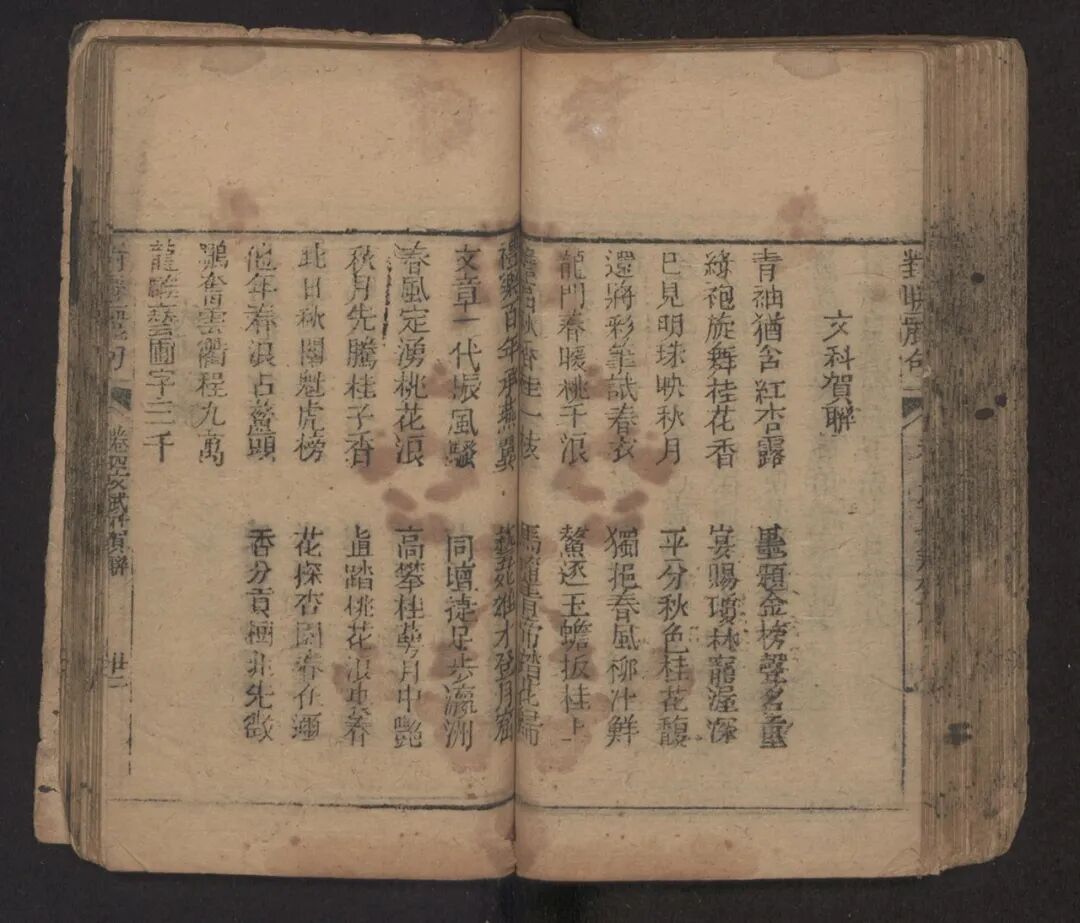 文科賀聯
青袖猶含紅杏露　墨題金榜聲名重
綠袍旋舞桂花香　宴賜瓊林寵渥深
已見明珠映秋月　平分秋色桂花馥
還將彩筆試春衣　獨挹春風柳汁鮮
龍門春暖桃千浪　鰲逐玉蟾扳桂上
秋香桂一枝　馬隨青踏花歸
禮樂百年承燕翼　雄才登月窟
文章一代振風騷　同壇徒足步瀛洲
春風定湧桃花浪　高攀桂蕚月中艷
秋月先騰桂子香　直踏桃花浪裏春
此日秋闈魁虎榜　花探杏園春在邇
他年春浪占鰲頭　香分貢樹兆先徵
鵬奮雲衢程九萬
龍騰藝圃字三千
卷四文武科賀聯